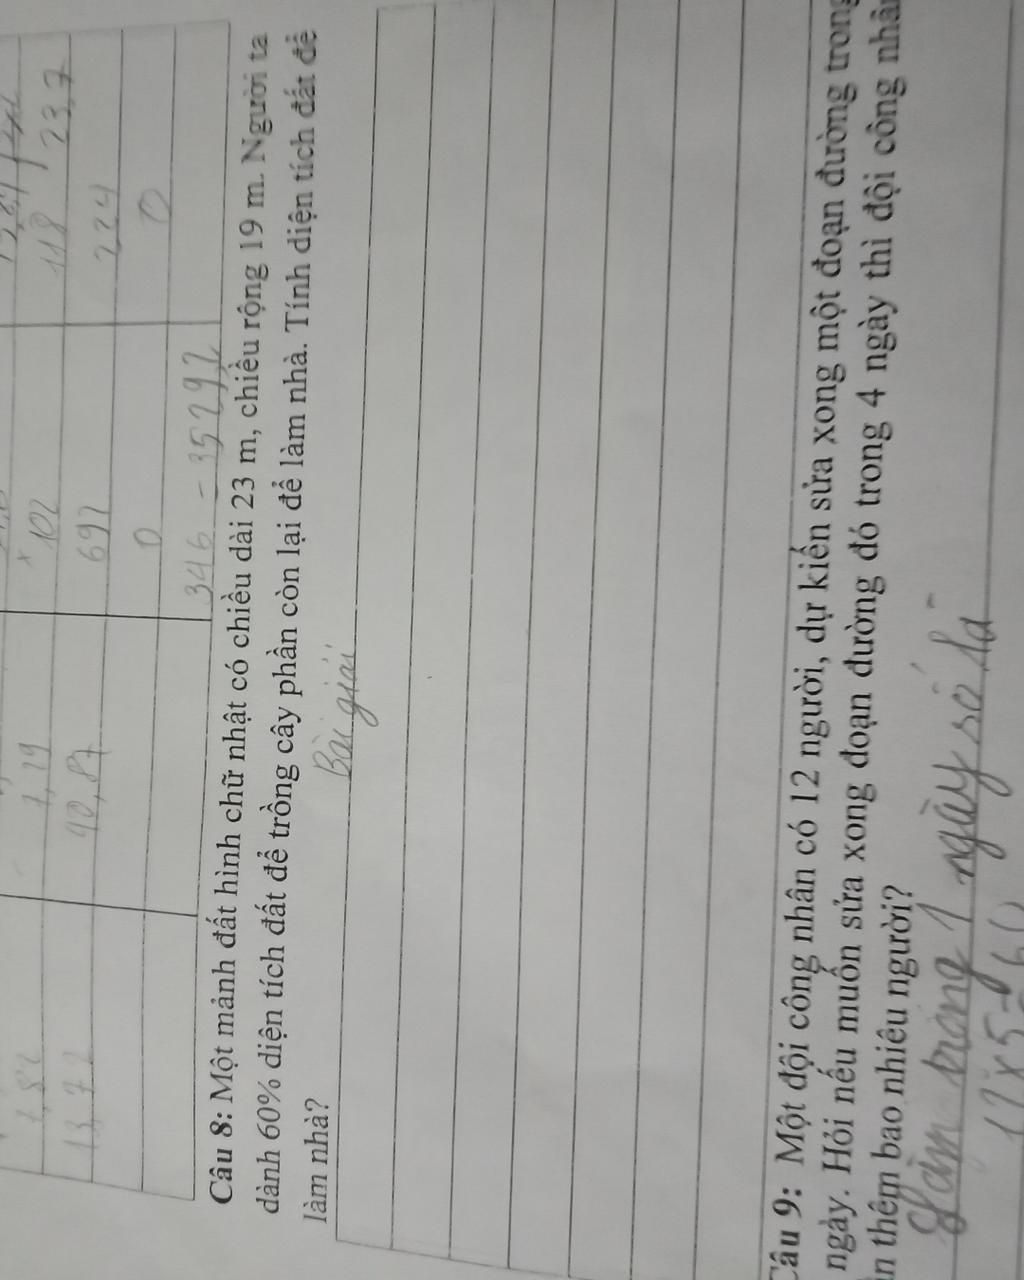 23,7
118
224
0
102
692
0
346
35292
7,29
40,87
13,72
Câu 8: Một mảnh đất hình chữ nhật có chiều dài 23 m, chiều rộng 19 m. Người ta
dành 60% diện tích đất để trồng cây phần còn lại để làm nhà. Tính diện tích đất để
làm nhà?
Bài giải
Câu 9: Một đội công nhân có 12 người, dự kiến sửa xong một đoạn đường trong
ngày. Hỏi nếu muốn sửa xong đoạn đường đó trong 4 ngày thì đội công nhân
thêm bao nhiêu người?
Làm trong 1 ngày số là
12 x 5 = 60